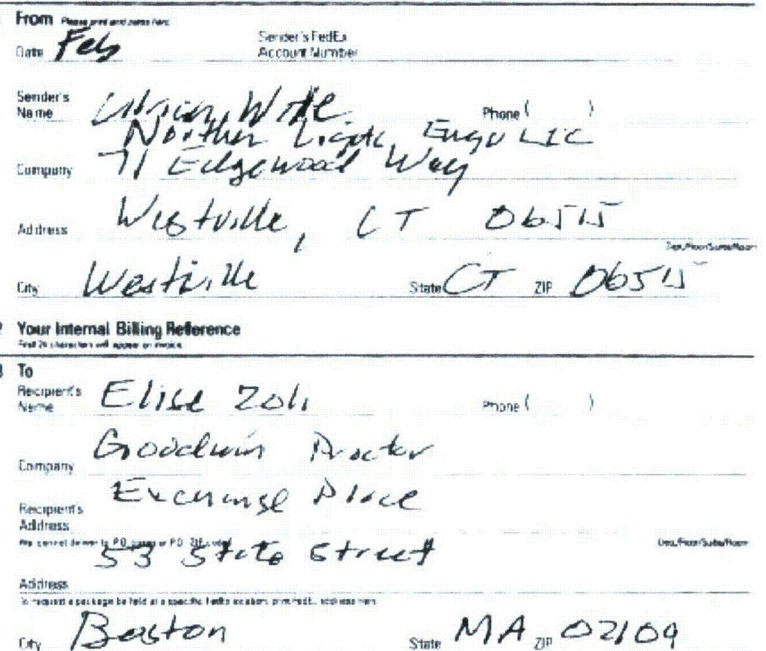 From Please print and press hard.
Date Feb Sender's FedEx
Account Number
Sender's
Name Phone ( )
Northern Light, LLC
Company 71 Edgewood Way
Address Westville, CT 06515
Dept./Floor/Suite/Room
City Westville State CT ZIP 06515
Your Internal Billing Reference
First 24 characters will appear on invoice.
3 To
Recipient's
Name Elise Zoli Phone ( )
Company Goodwin Procter
Recipient's
Address Exchange Place
We cannot deliver to P.O. boxes or P.O. ZIP codes. Dept./Floor/Suite/Room
53 State Street
Address
To request a package be held at a specific FedEx location, print FedEx address here.
City Boston State MA ZIP 02109